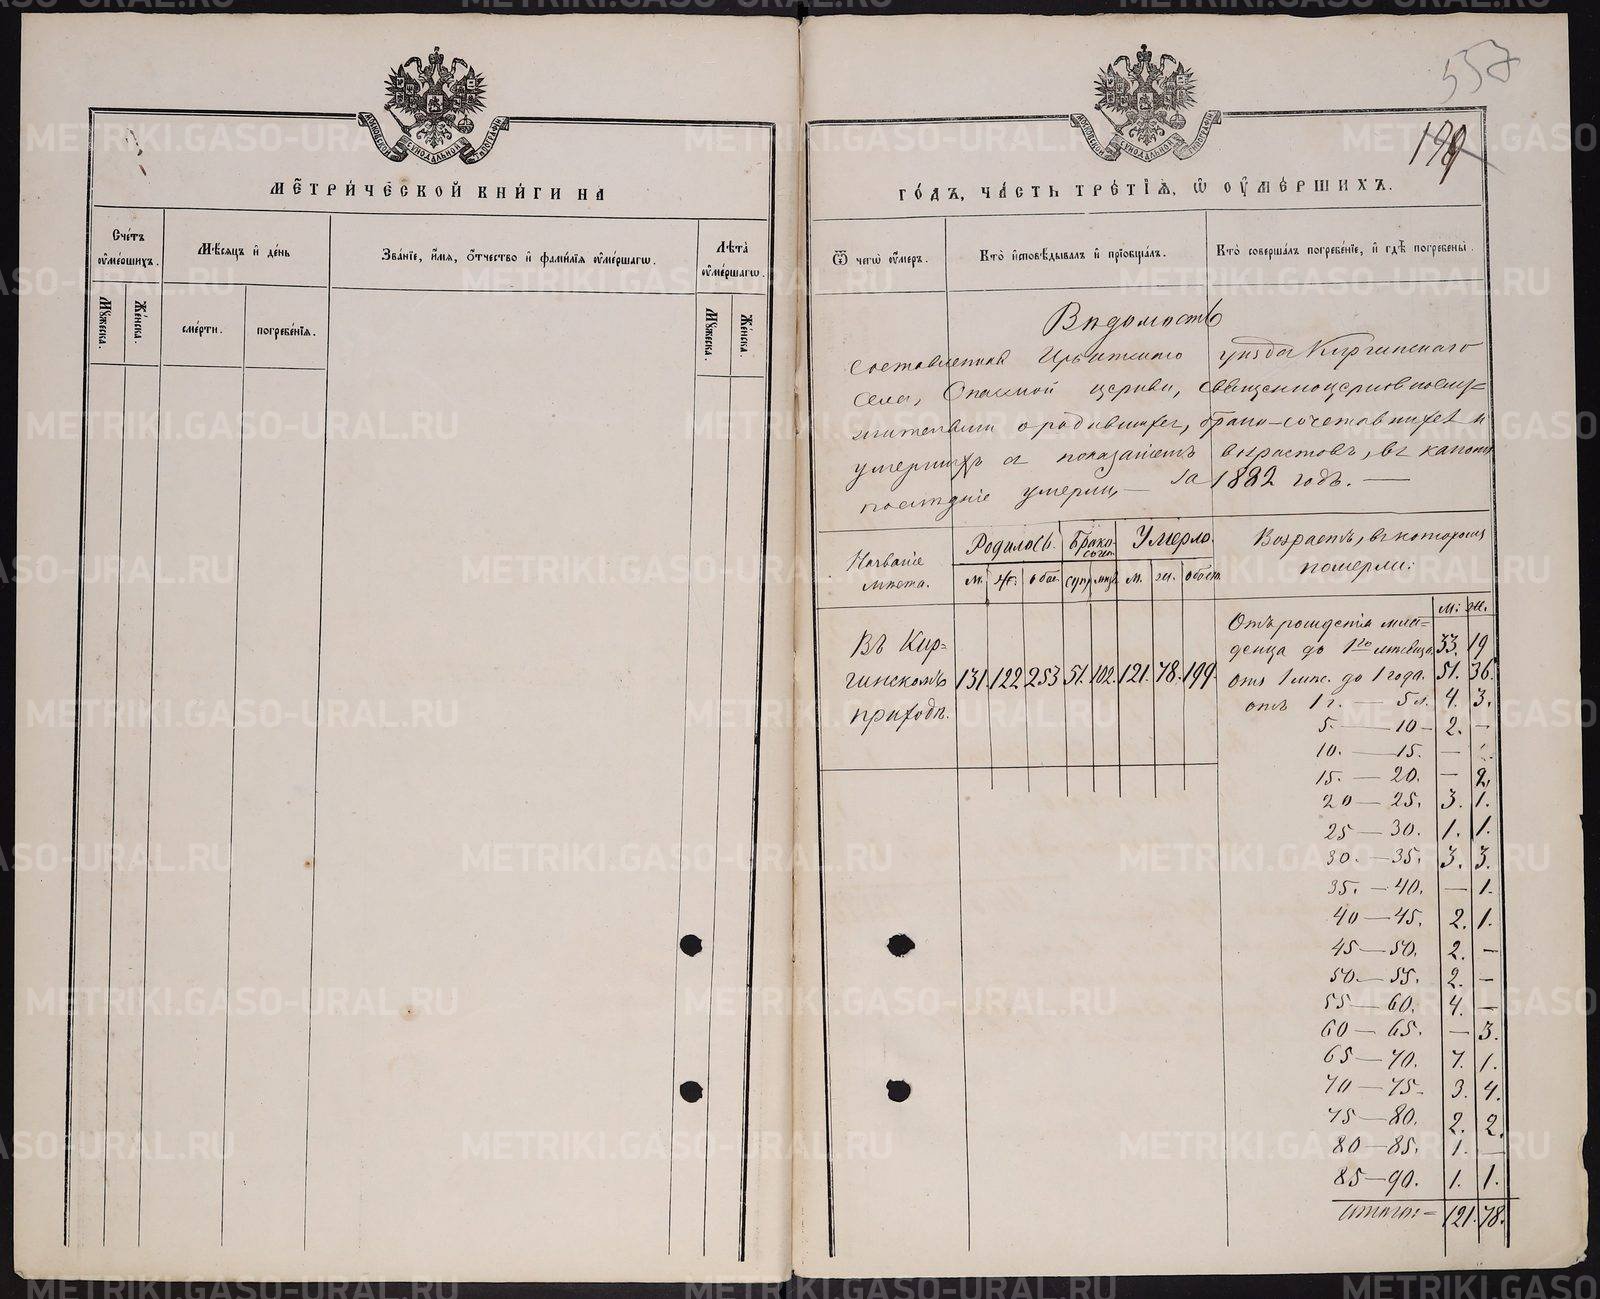 557
199
МОСКОВСКОЙ СѴНОДАЛЬНОЙ ТИПОГРАФІИ
МЕТРИ́ЧЕСКОЙ КНИ́ГИ НА
Сче́тъ ᲂу҆ме́ршихъ.
Мѣ́сяцъ и҆ де́нь
Зва́нїе, и҆́мя, ѻ҆́тчество и҆ фами́лїя ᲂу҆ме́ршагѡ.
Лѣ́та ᲂу҆ме́ршагѡ.
Мꙋ́жеска.
Же́нска.
сме́рти.
погребе́нїя.
Мꙋ́жеска.
Же́нска.
МОСКОВСКОЙ СѴНОДАЛЬНОЙ ТИПОГРАФІИ
ГО́ДЪ, ЧА́СТЬ ТРЕ́ТЇѦ, Ѡ҆ ОУ҆МЕ́РШИХЪ.
Ѿ чегѡ̀ ᲂу҆́меръ.
Кто̀ и҆сповѣ́дывалъ и҆ прїѡбща́лъ.
Кто̀ соверша́лъ погребе́нїе, и҆ гдѣ̀ погребены̀.
Вѣдомость
составленная Ирбитскаго уѣзда Киргинскаго
села, Спасской церкви, священноцерковнослу=
жителями о родившихся, брако-сочетавшихся и
умершихъ съ показаніемъ възрастовъ, въ какомъ
послѣдніе умерли, — за 1882 годъ. —
Названіе мѣста.
Родилось.
Брако-сочет.
Умерло.
Возрастъ, въ которомъ померли:
м. ж: обоег.
супр. лицъ
м. ж. обоего.
м: ж.
Въ Кир-
гинскомъ
приходѣ.
131. 122. 253 51. 102. 121. 78. 199.
Отъ рожденія мла=
денца до 1го мѣсяца. 33. 19
отъ 1 мѣс. до 1 года. 51. 36.
отъ 1 г. — 5 л. 4. 3.
5. — 10 — 2. —
10. — 15. —
15. — 20. — 2.
20 — 25. 3. 1.
25 — 30. 1. 1.
30. — 35. 3. 3.
35. — 40. — 1.
40 — 45. 2. 1.
45 — 50. 2. —
50. — 55. 2. —
55 — 60. 4. —
60 — 65. — 3.
65 — 70. 7. 1.
70 — 75. 3. 4.
75 — 80. 2. 2.
80 — 85. 1. —
85 — 90. 1. 1.
Итого: = 121. 78.
METRIKI.GASO-URAL.RU